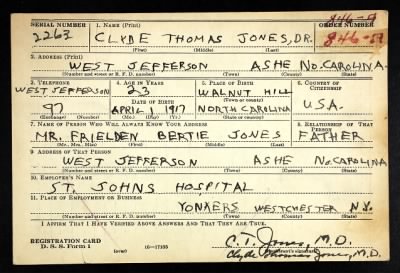 SERIAL NUMBER 1. NAME (Print) ORDER NUMBER
846-A
2263 CLYDE THOMAS JONES, DR. 846-A
(First) (Middle) (Last)
2. ADDRESS (Print)
WEST JEFFERSON ASHE NO. CAROLINA
(Number and street or R. F. D. number) (Town) (County) (State)
3. TELEPHONE 4. AGE IN YEARS 5. PLACE OF BIRTH 6. COUNTRY OF CITIZENSHIP
WEST JEFFERSON 23 WALNUT HILL
(Exchange) DATE OF BIRTH (Town or county) U.S.A.
97 APRIL 1 1917 NORTH CAROLINA
(Number) (Mo.) (Day) (Yr.) (State or country)
7. NAME OF PERSON WHO WILL ALWAYS KNOW YOUR ADDRESS 8. RELATIONSHIP OF THAT PERSON
MR. FRIELDEN BERTIE JONES FATHER
(Mr., Mrs., Miss) (First) (Middle) (Last)
9. ADDRESS OF THAT PERSON
WEST JEFFERSON ASHE NO. CAROLINA
(Number and street or R. F. D. number) (Town) (County) (State)
10. EMPLOYER'S NAME
ST. JOHNS HOSPITAL
11. PLACE OF EMPLOYMENT OR BUSINESS
YONKERS WESTCHESTER N.Y.
(Number and street or R. F. D. number) (Town) (County) (State)
I AFFIRM THAT I HAVE VERIFIED ABOVE ANSWERS AND THAT THEY ARE TRUE.
REGISTRATION CARD C. T. Jones, M.D.
D. S. S. Form 1 (over) 16—17105 (Registrant's signature)
Clyde Thomas Jones, M.D.